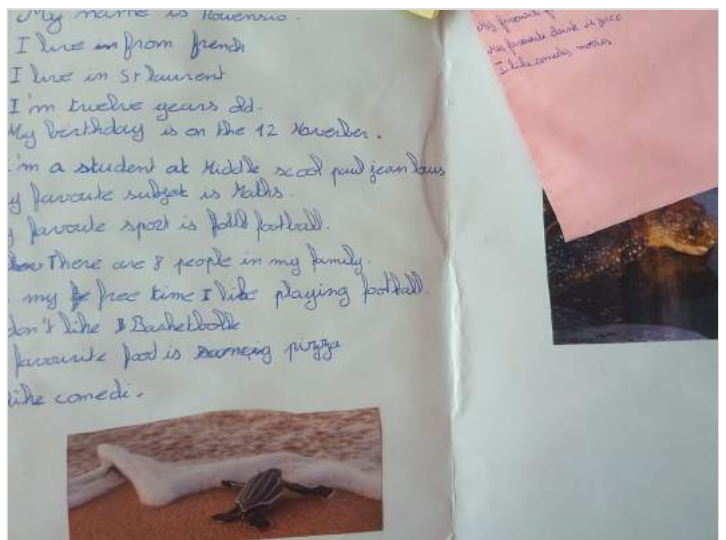 My name is Rowensio.
I live in from french
I live in St laurent
I'm twelve years old.
My birthday is on the 12 November.
I'm a student at Middle scool paul jean louis
y favorite subjet is Maths.
y favorite sport is football.
There are 8 people in my family.
my free time I like playing football.
don't like Basketbolle
favourite food is pizza
like comedi.
My favourite
My favourite drink is
I like comedies movies